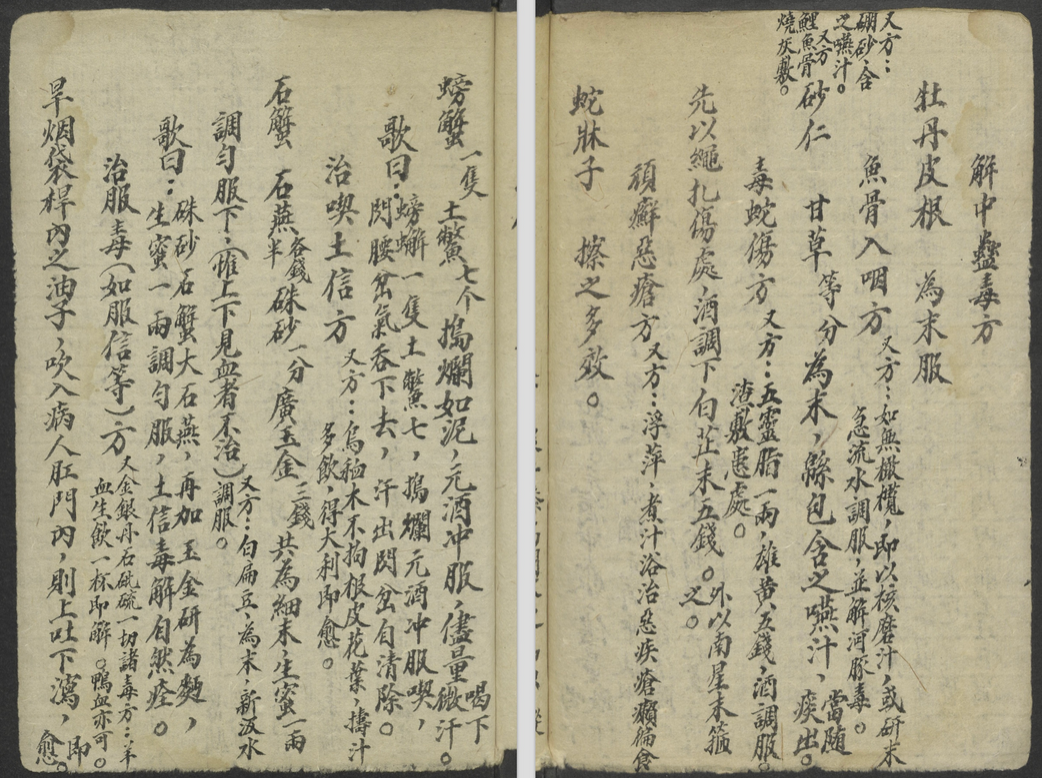 解中蠱毒方
牡丹皮根　為末服
魚骨入咽方　又方：如無橄欖，即以核磨汁，或研末
急流水調服，並解河豚毒。
砂仁　甘草　等分為末，綿包含之嚥汁，當隨
痰出。
又方：
硼砂、含
之嚥汁。
又方
鯉魚骨
燒灰敷。
毒蛇傷方　又方：五靈脂一兩，雄黃五錢，酒調服。
渣敷患處。
先以繩扎傷處，酒調下白芷末五錢。外以南星末箍
之。
頑癬惡瘡方　又方：浮萍，煮汁浴治惡疾瘡癩徧合
蛇牀子　擦之多效。
螃蟹一隻　土鱉七个　搗爛如泥，元酒冲服，儘量喝下
微汗。
歌曰：螃蠏一隻土鱉七，搗爛元酒冲服喫，
閃腰岔氣吞下去，汗出閃岔自清除。
治喫土信方　又方：烏桕木不拘根皮花葉，擣汁
多飲，得大利即愈。
石蟹　石燕各錢半　硃砂一分　廣玉金三錢　共為細末，生蜜一兩
調勻服下，（惟上下見血者不治）又方：白扁豆，為末，新汲水
調服。
歌曰：硃砂石蟹大石燕，再加玉金研為麵，
生蜜一兩調勻服，土信毒解自然痊。
治服毒（如服信等）方　又金銀丹石砒硫一切諸毒方：羊
血生飲一杯即解。鴨血亦可。
旱烟袋桿內之油子，吹入病人肛門內，則上吐下瀉，即
愈。